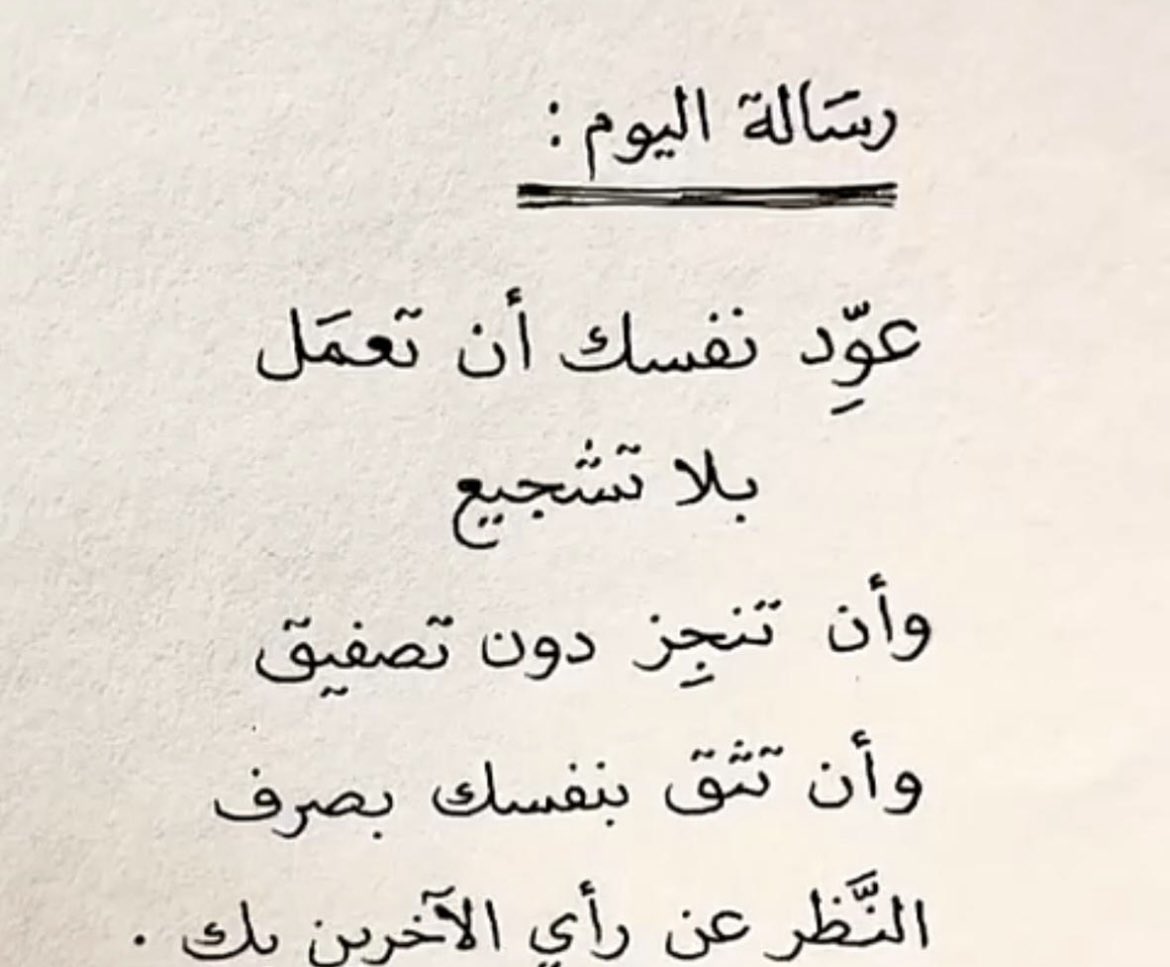 رسَالة اليوم :
عوِّد نفسك أن تعمَل
بلا تشجيع
وأن تنجِز دون تصفيق
وأن تثق بنفسك بصرف
النَّظر عن رأي الآخرين بك .